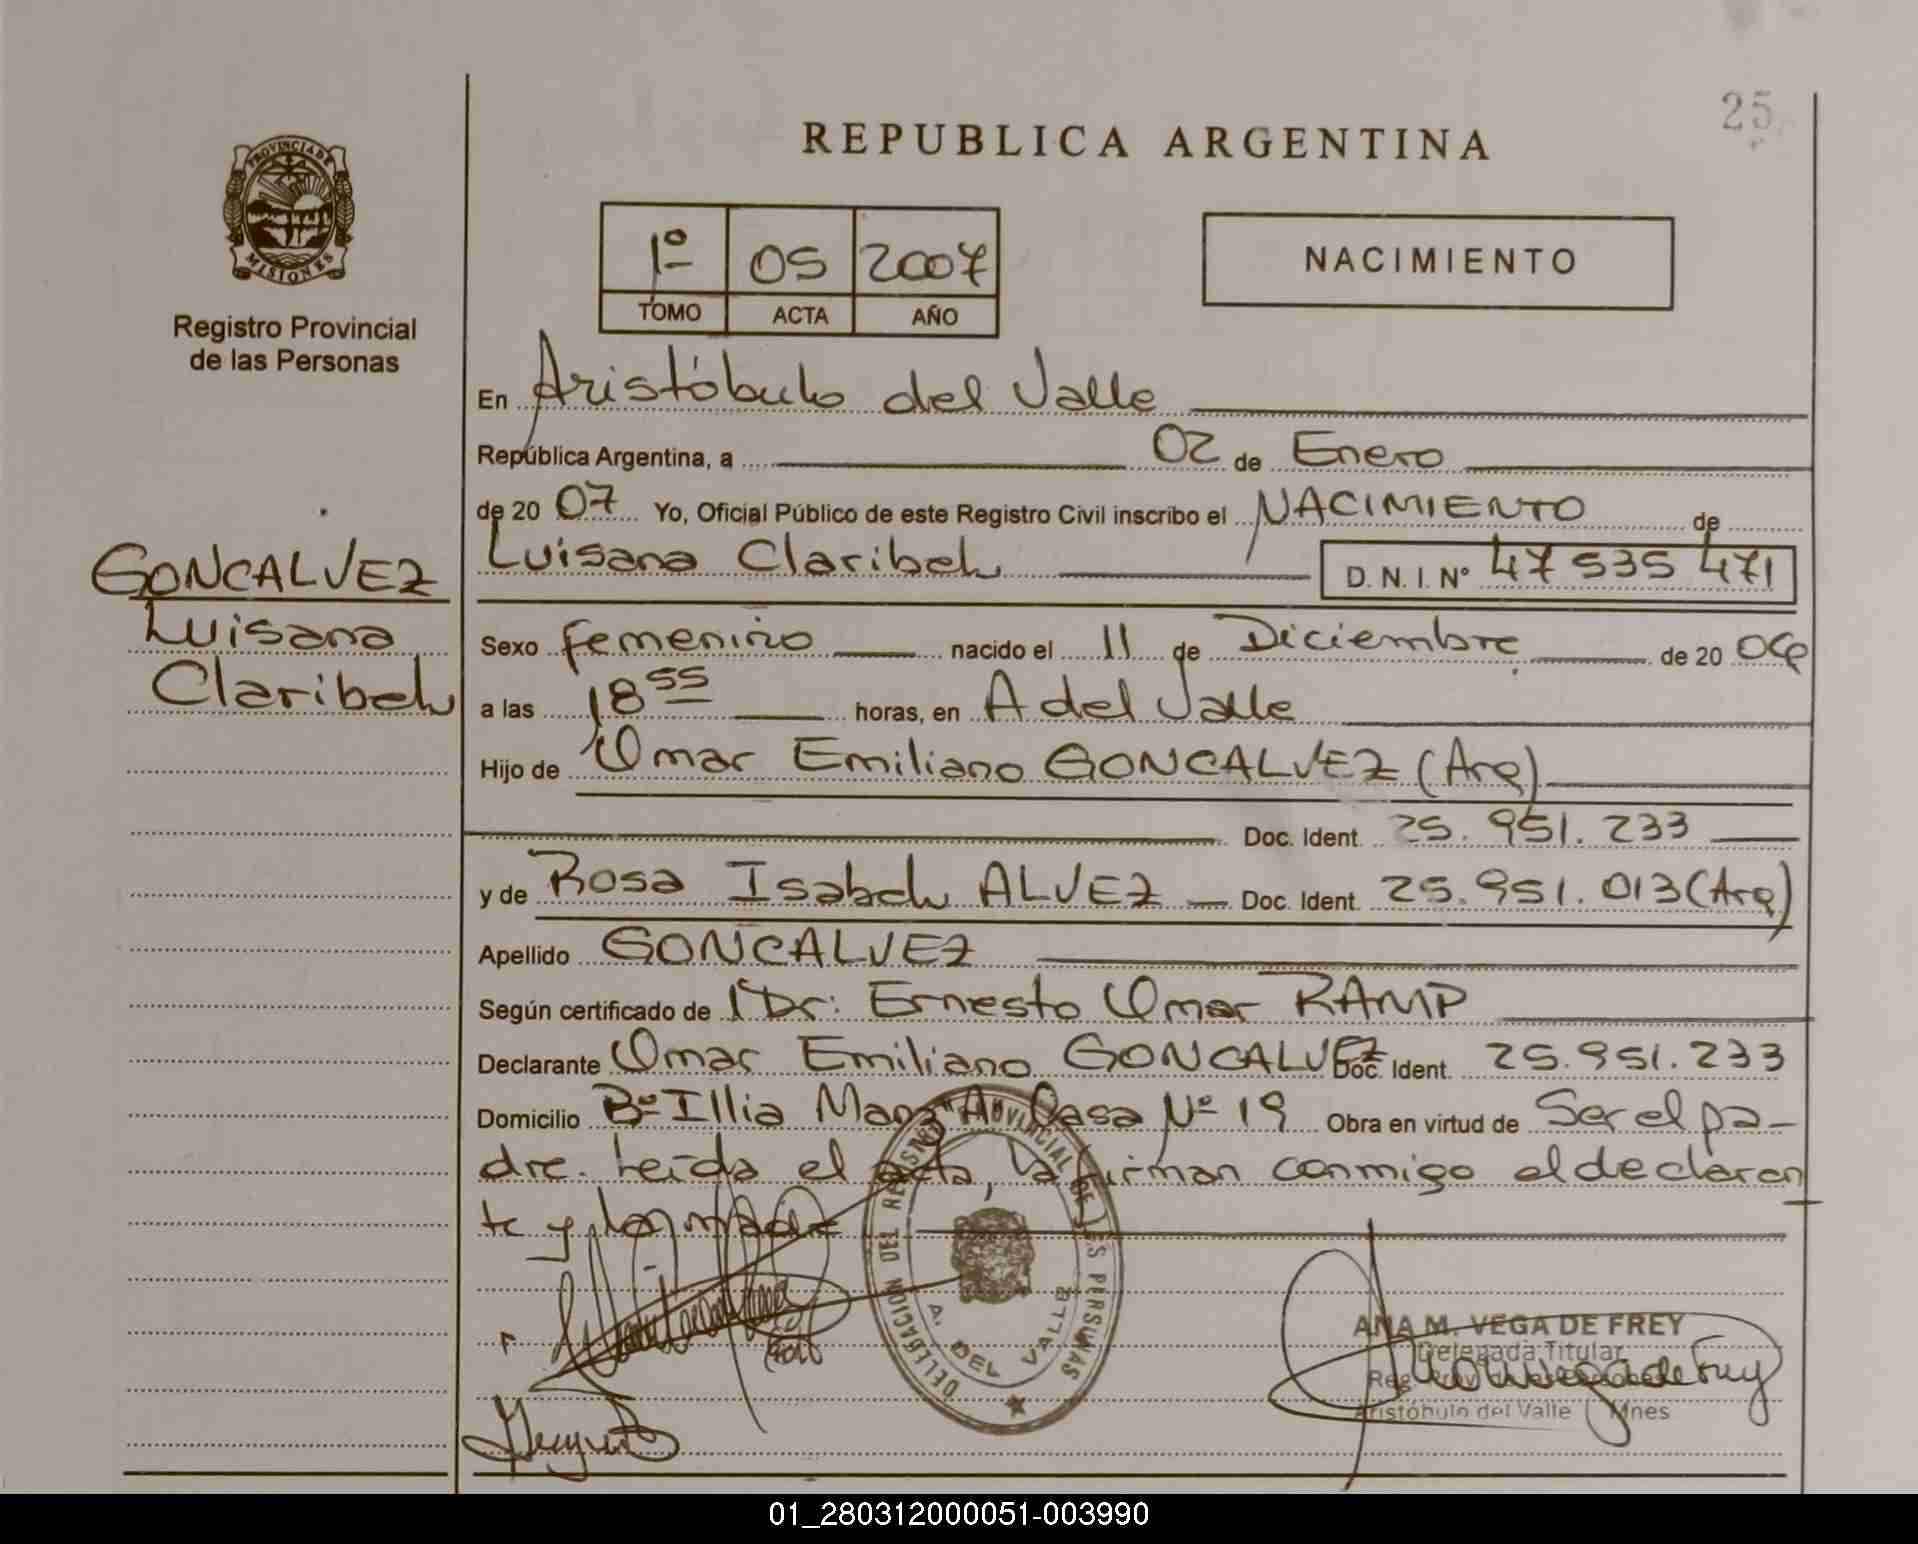 25
REPUBLICA ARGENTINA
PROVINCIA DE
MISIONES
Registro Provincial
de las Personas
1º 05 2007
TOMO ACTA AÑO
NACIMIENTO
En Aristóbulo del Valle
República Argentina, a 02 de Enero
de 20 07 Yo, Oficial Público de este Registro Civil inscribo el NACIMIENTO de
Luisana Claribel D.N.I. Nº 47 535 471
GONCALVEZ
Luisana
Claribel
Sexo femenino nacido el 11 de Diciembre de 20 06
a las 18 55 horas, en A del Valle
Hijo de Omar Emiliano GONCALVEZ (Arg)
Doc. Ident. 25.951.233
y de Rosa Isabel ALVEZ Doc. Ident. 25.951.013 (Arg)
Apellido GONCALVEZ
Según certificado de Dr: Ernesto Omar RAMP
Declarante Omar Emiliano GONCALVEZ Doc. Ident. 25.951.233
Domicilio Bº Illia Manz "A" Casa Nº 19 Obra en virtud de Ser el pa-
dre. Leída el acta, la firman conmigo el declaran
te y la madre
DELEGACION DEL REGISTRO PROVINCIAL DE LAS PERSONAS
A. DEL VALLE
ANA M. VEGA DE FREY
Delegada Titular
Reg. Prov. de las Personas
Aristóbulo del Valle Mnes
01_280312000051-003990